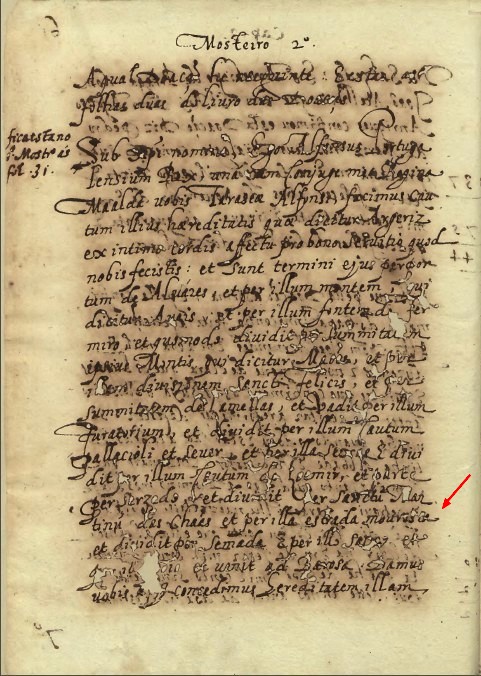 Mosteiro 2º.
A qual doação he a seguinte: Está em as
folhas duas do livro das
ficat stano
Mostrº as
fol. 31.
Sub Dei nomine, Ego Alfonsus Portuga
lensium Rex, unā cum conjuge mea Regina
Maalda vobis Tarasea Alfonsi, facimus Cau
tum illius hæreditatis quæ dicitur Argeriz
ex intimo cordis affectu pro bono servitio quod
nobis fecistis: et sunt termini ejus per por
tum de Alvares, et per illum montem, qui
dicitur Anais et per illum fontem de Fer
miro, et quomodo dividit per summitatem
ipsius Montis, qui dicitur et per
divisionem Sancti felicis, et per
summitatem de Lamellas, et vadit per illum
Curaturium, et dividit per illum Cautum
Pallacioli et Sever, et per illa et divi
dit per illum Cautum de et
per Surzedo, et dividit per Sanctū Mar
tinū das Chaās et per illa estrada mourisca
et dividit per Semada per illū et
et venit ad Barosa. Damus
vobis concedimus hereditatem illam